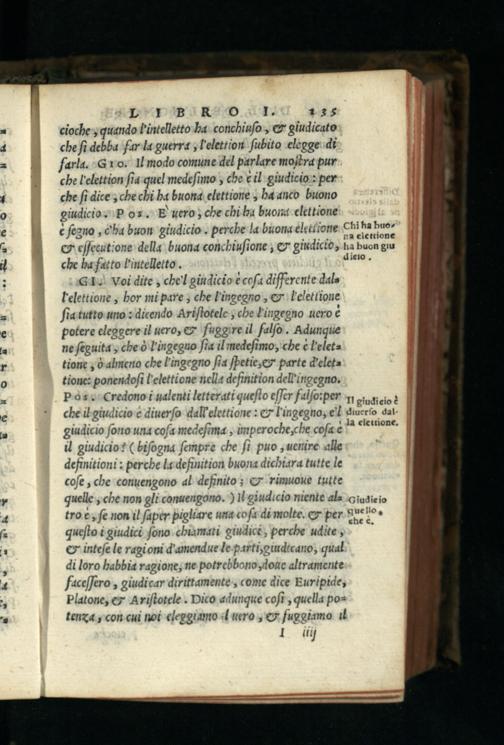 LIBRO I. 135
cioche, quando l'intelletto ha conchiuso, & giudicato
che si debba far la guerra, l'elettion subito elegge di
farla. GIO. Il modo comune del parlare mostra pur
che l'elettion sia quel medesimo, che è il giudicio: per
che si dice, che chi ha buona elettione, ha anco buono
giudicio. POS. E' uero, che chi ha buona elettione
è segno, c'ha buon giudicio. perche la buona elettione
& essecutione della buona conchiusione, & giudicio,
che ha fatto l'intelletto.
Chi ha buo-
na elettione
ha buon giu
dicio.
GI. Voi dite, che'l giudicio è cosa differente dal-
l'elettione, hor mi pare, che l'ingegno, & l'elettione
sia tutto uno: dicendo Aristotele, che l'ingegno uero è
potere eleggere il uero, & fuggire il falso. Adunque
ne seguita, che ò l'ingegno sia il medesimo, che è l'elet-
tione, ò almeno che l'ingegno sia spetie, & parte d'elet-
tione: ponendosi l'elettione nella definition dell'ingegno.
POS. Credono i ualenti letterati questo esser falso: per
che il giudicio è diuerso dall'elettione: & l'ingegno, e'l
giudicio sono una cosa medesima, imperoche, che cosa è
il giudicio? (bisogna sempre che si puo, uenire alle
definitioni: perche la definition buona dichiara tutte le
cose, che conuengono al definito; & rimuoue tutte
quelle, che non gli conuengono.) Il giudicio niente al-
tro è, se non il saper pigliare una cosa di molte. & per
questo i giudici sono chiamati giudici, perche udite,
& intese le ragioni d'amendue le parti, giudicano, qual
di loro habbia ragione, ne potrebbono, doue altramente
facessero, giudicar dirittamente, come dice Euripide,
Platone, & Aristotele. Dico adunque cosi, quella po-
tenza, con cui noi eleggiamo il uero, & fuggiamo il
Il giudicio è
diuerso dal-
la elettione.
Giudicio
quello,
che è.
I iiij